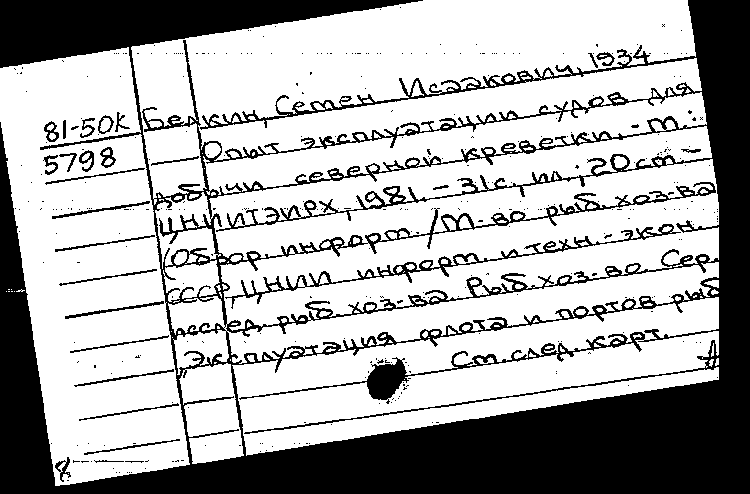 81-50К Белкин, Семен Исаакович, 1934
5798 Опыт эксплуатации судов для
добычи северной креветки. - М.:
ЦНИИТЭИРХ, 1981. - 31с., ил.; 20 см. -
(Обзор. информ. / М-во рыб. хоз-ва
СССР, ЦНИИ информ. и техн.-экон.
исслед. рыб. хоз-ва. Рыб. хоз-во. Сер.
„Эксплуатация флота и портов рыб
Ст. след. карт.
8